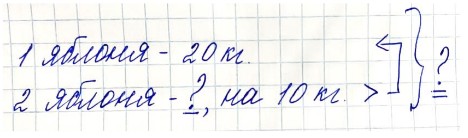 1 яблоня - 20 кг.
2 яблоня - ?, на 10 кг. >
?